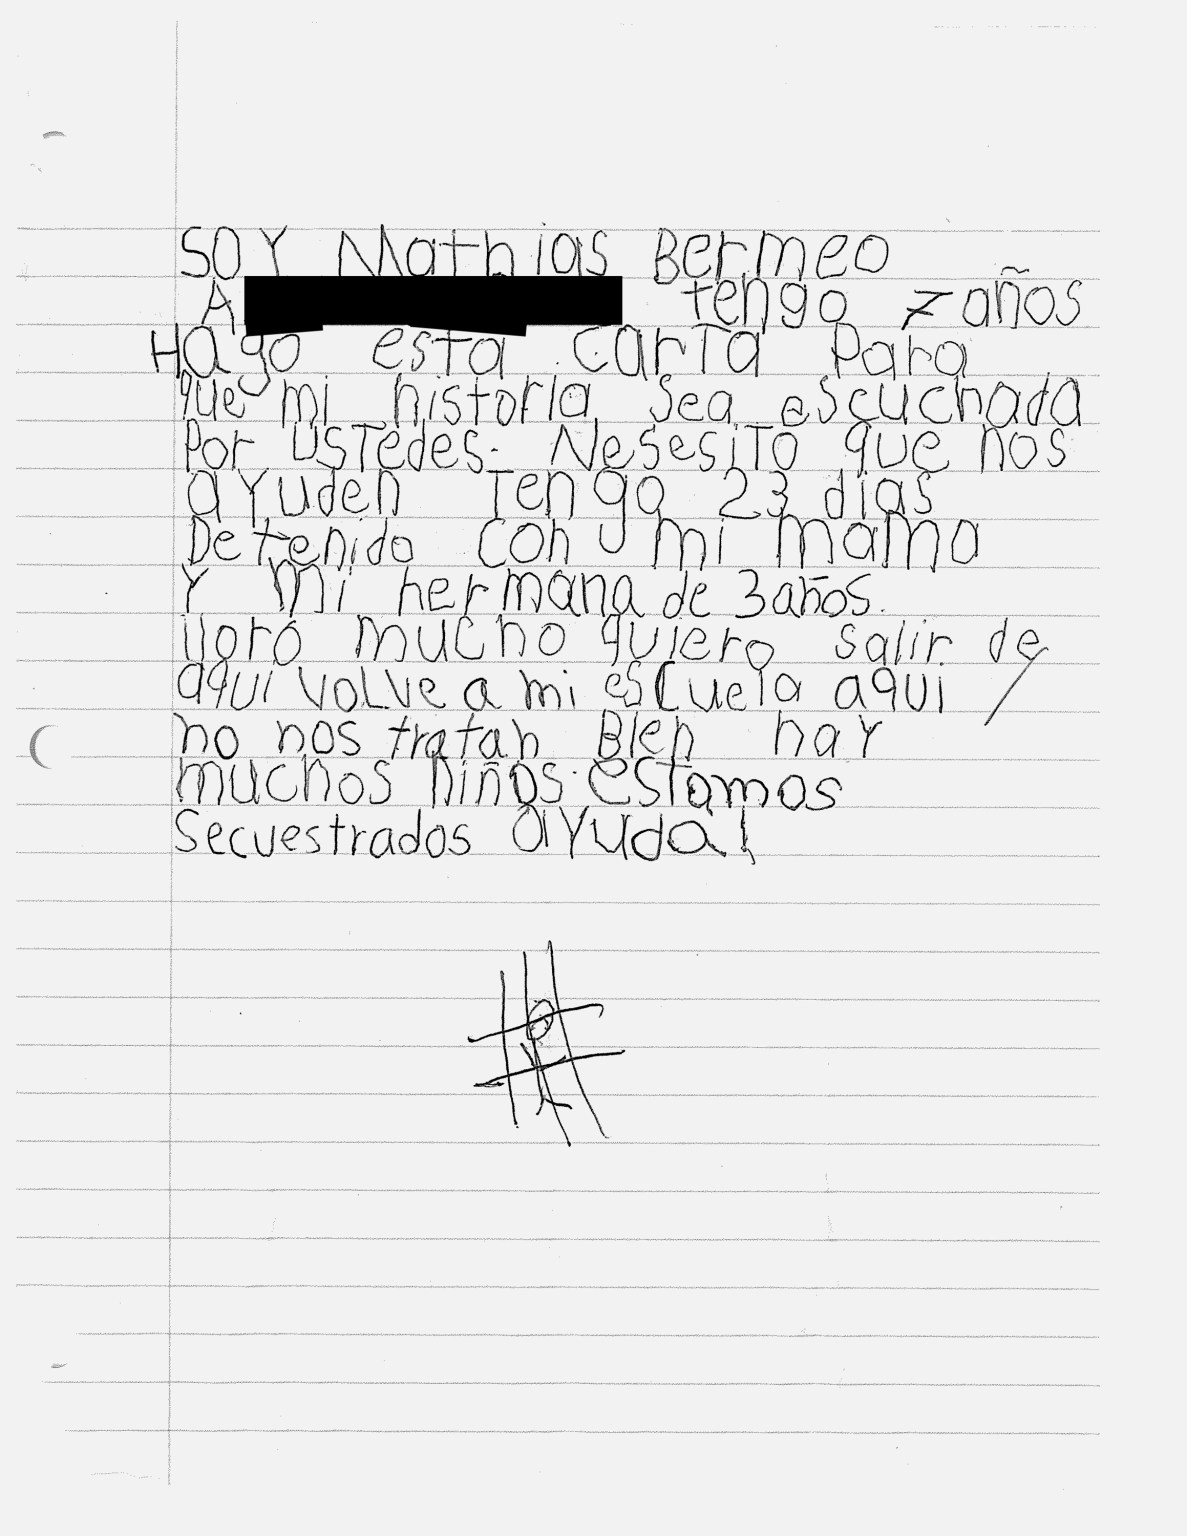 SOY Mathias Bermeo
A tengo 7 años
Hago esta carta Para
que mi historia sea escuchada
Por USTedes. NesesiTo que nos
ayuden Tengo 23 dias
Detenido con mi mama
Y mi hermana de 3 años.
lloro mucho quiero salir de
aqui volve a mi escuela aqui
no nos tratan Bien hay
muchos niños. esTamos
secuestrados ayuda!